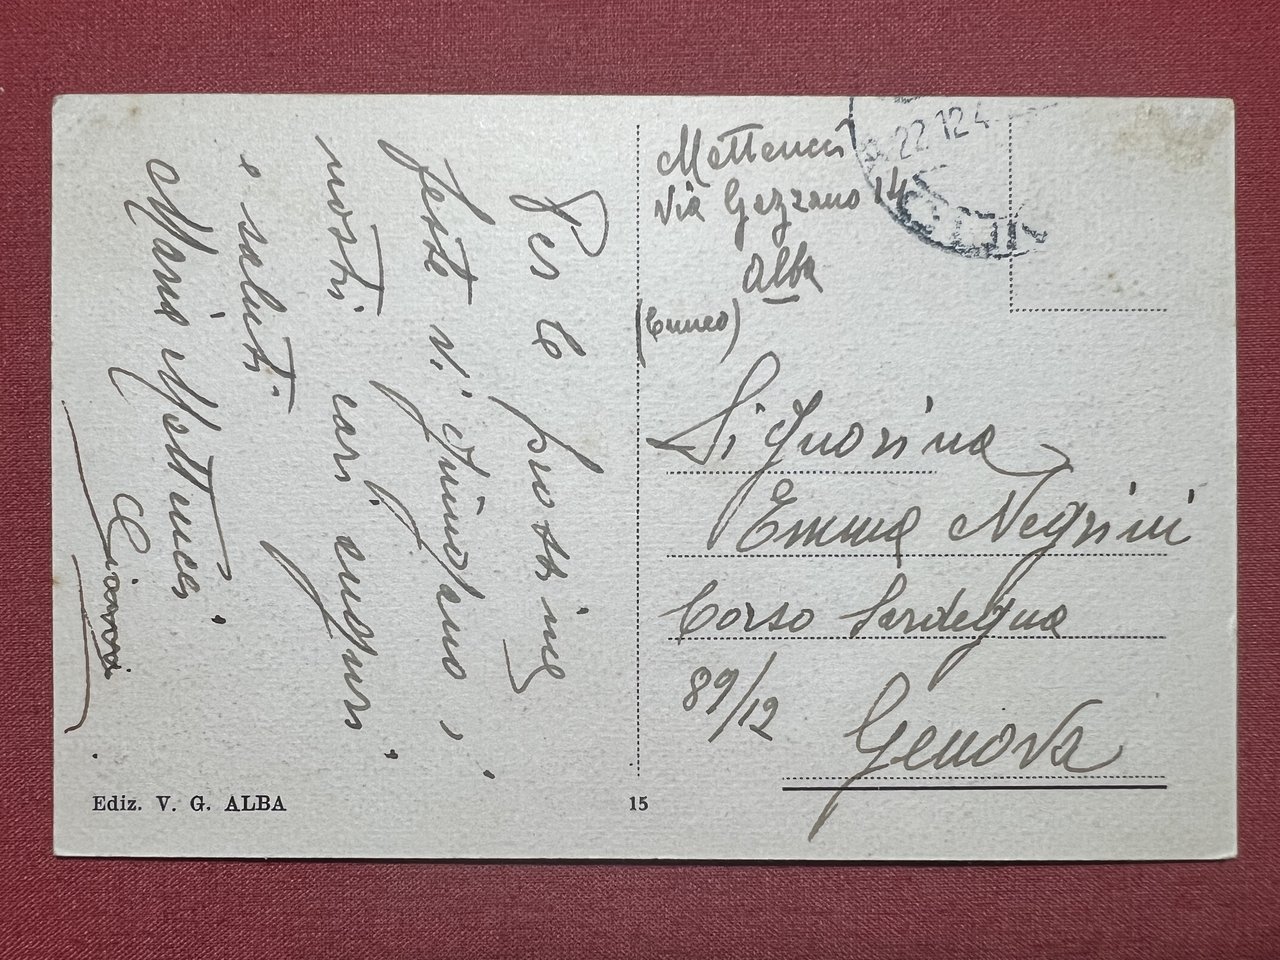 Per le prossime
feste vi giungano i
nostri cari auguri
e saluti
Maria Matteucci
Giovanni
Matteucci
Via Gazzano 14
Alba
(Cuneo)
22.12.4
Signorina
Emma Negrini
Corso Sardegna
89/12
Genova
Ediz. V. G. ALBA
15